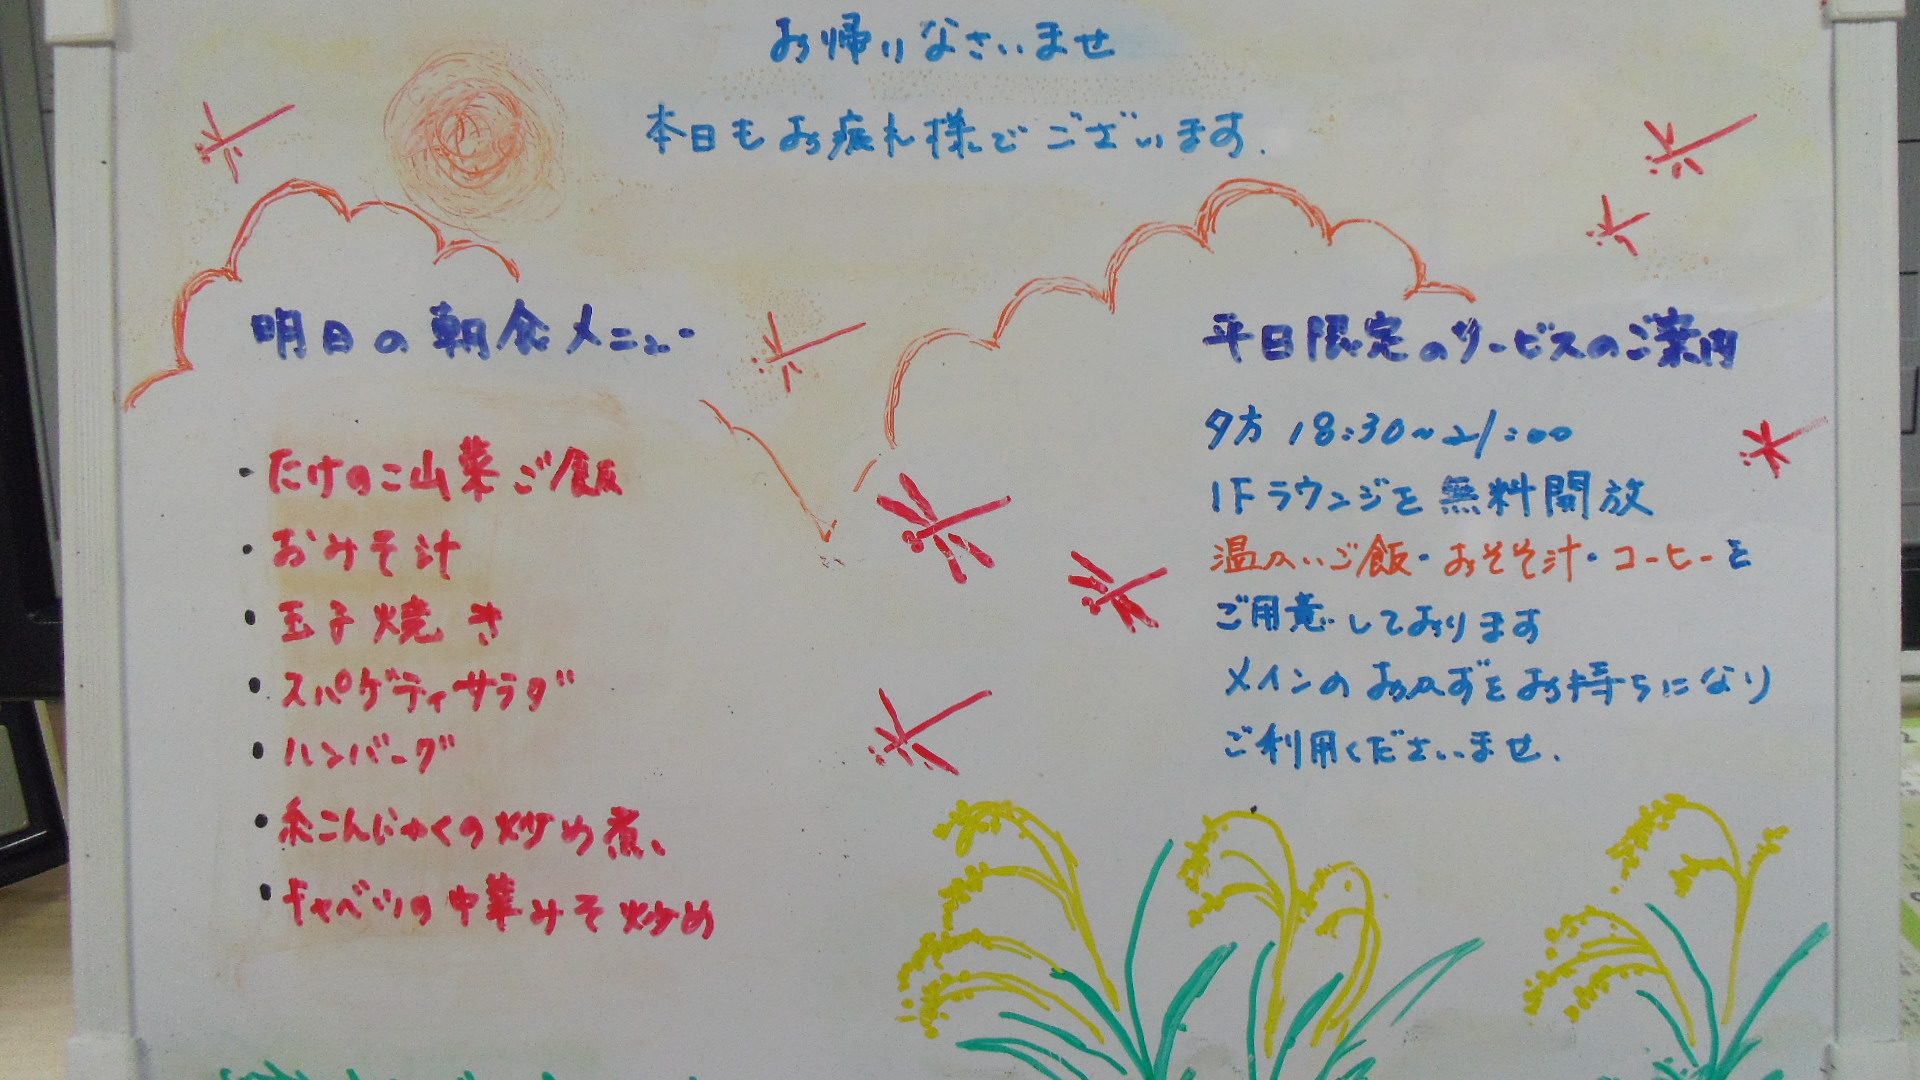 お帰りなさいませ
本日もお疲れ様でございます.
明日の朝食メニュー
・たけのこ山菜ご飯
・おみそ汁
・玉子焼き
・スパゲティサラダ
・ハンバーグ
・糸こんにゃくの炒め煮
・キャベツの中華みそ炒め
平日限定のサービスのご案内
夕方 18:30~21:00
1Fラウンジを無料開放
温かいご飯・おみそ汁・コーヒーを
ご用意しております
メインのおかずをお持ちになり
ご利用くださいませ.